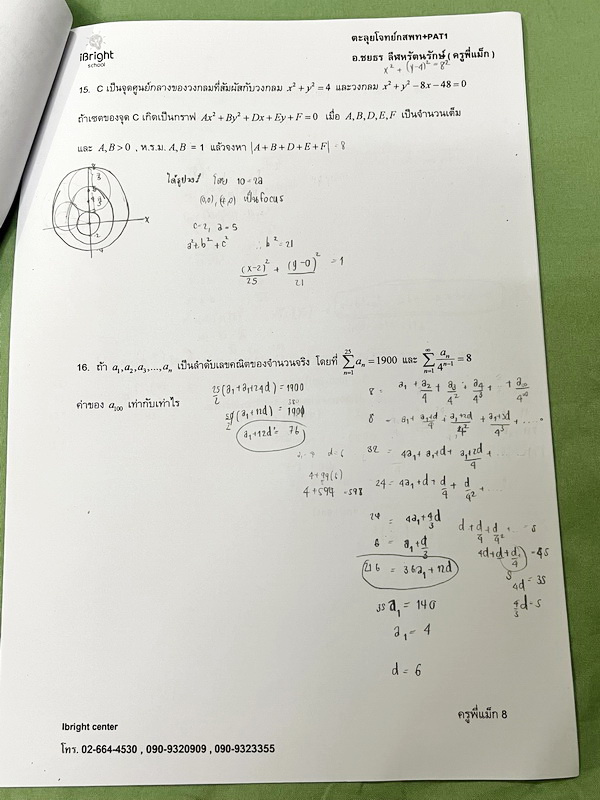 iBright
school
ตะลุยโจทย์กสพท+PAT1
อ.ชยธร ลีฬหรัตนรักษ์ ( ครูพี่แม็ก )
x² + (y-4)² = 8²
15. C เป็นจุดศูนย์กลางของวงกลมที่สัมผัสกับวงกลม x² + y² = 4 และวงกลม x² + y² − 8x − 48 = 0
ถ้าเซตของจุด C เกิดเป็นกราฟ Ax² + By² + Dx + Ey + F = 0 เมื่อ A, B, D, E, F เป็นจำนวนเต็ม
และ A, B > 0 , ห.ร.ม. A, B = 1 แล้วจงหา |A + B + D + E + F| = 8
โดย 10 = 2a
เป็น focus
c = 2, a = 5
a² = b² + c² ∴ b² = 21
(x-2)²/25 + (y-0)²/21 = 1
X
16. ถ้า a₁, a₂, a₃, ..., aₙ เป็นลำดับเลขคณิตของจำนวนจริง โดยที่ ∑ₙ₌₁²⁵ aₙ = 1900 และ ∑ₙ₌₁^∞ aₙ/4ⁿ⁻¹ = 8
ค่าของ a₁₀₀ เท่ากับเท่าไร
25/2 (a₁ + a₁ + 24d) = 1900
a₁ + 12d = 76
4 + 99(6)
4 + 594 = 598
8 = a₁ + a₂/4 + a₃/4² + a₄/4³ +
8 = a₁ + a₁+d/4 + a₁+2d/4² + a₁+3d/4³ + ...
32 = 4a₁ + a₁+d + a₁+2d/4 + ...
24 = 4a₁ + d + d/4 + d/4² + ...
24 = 4a₁ + 4d/3
6 = a₁ + d/3
216 = 36a₁ + 12d
35a₁ = 140
a₁ = 4
d = 6
d + d/4 + d/4² + ... = s
4d + d + d/4 + ... = 4s
4d = 3s
4/3 d = s
ครูพี่แม็ก 8
Ibright center
โทร. 02-664-4530 , 090-9320909 , 090-9323355